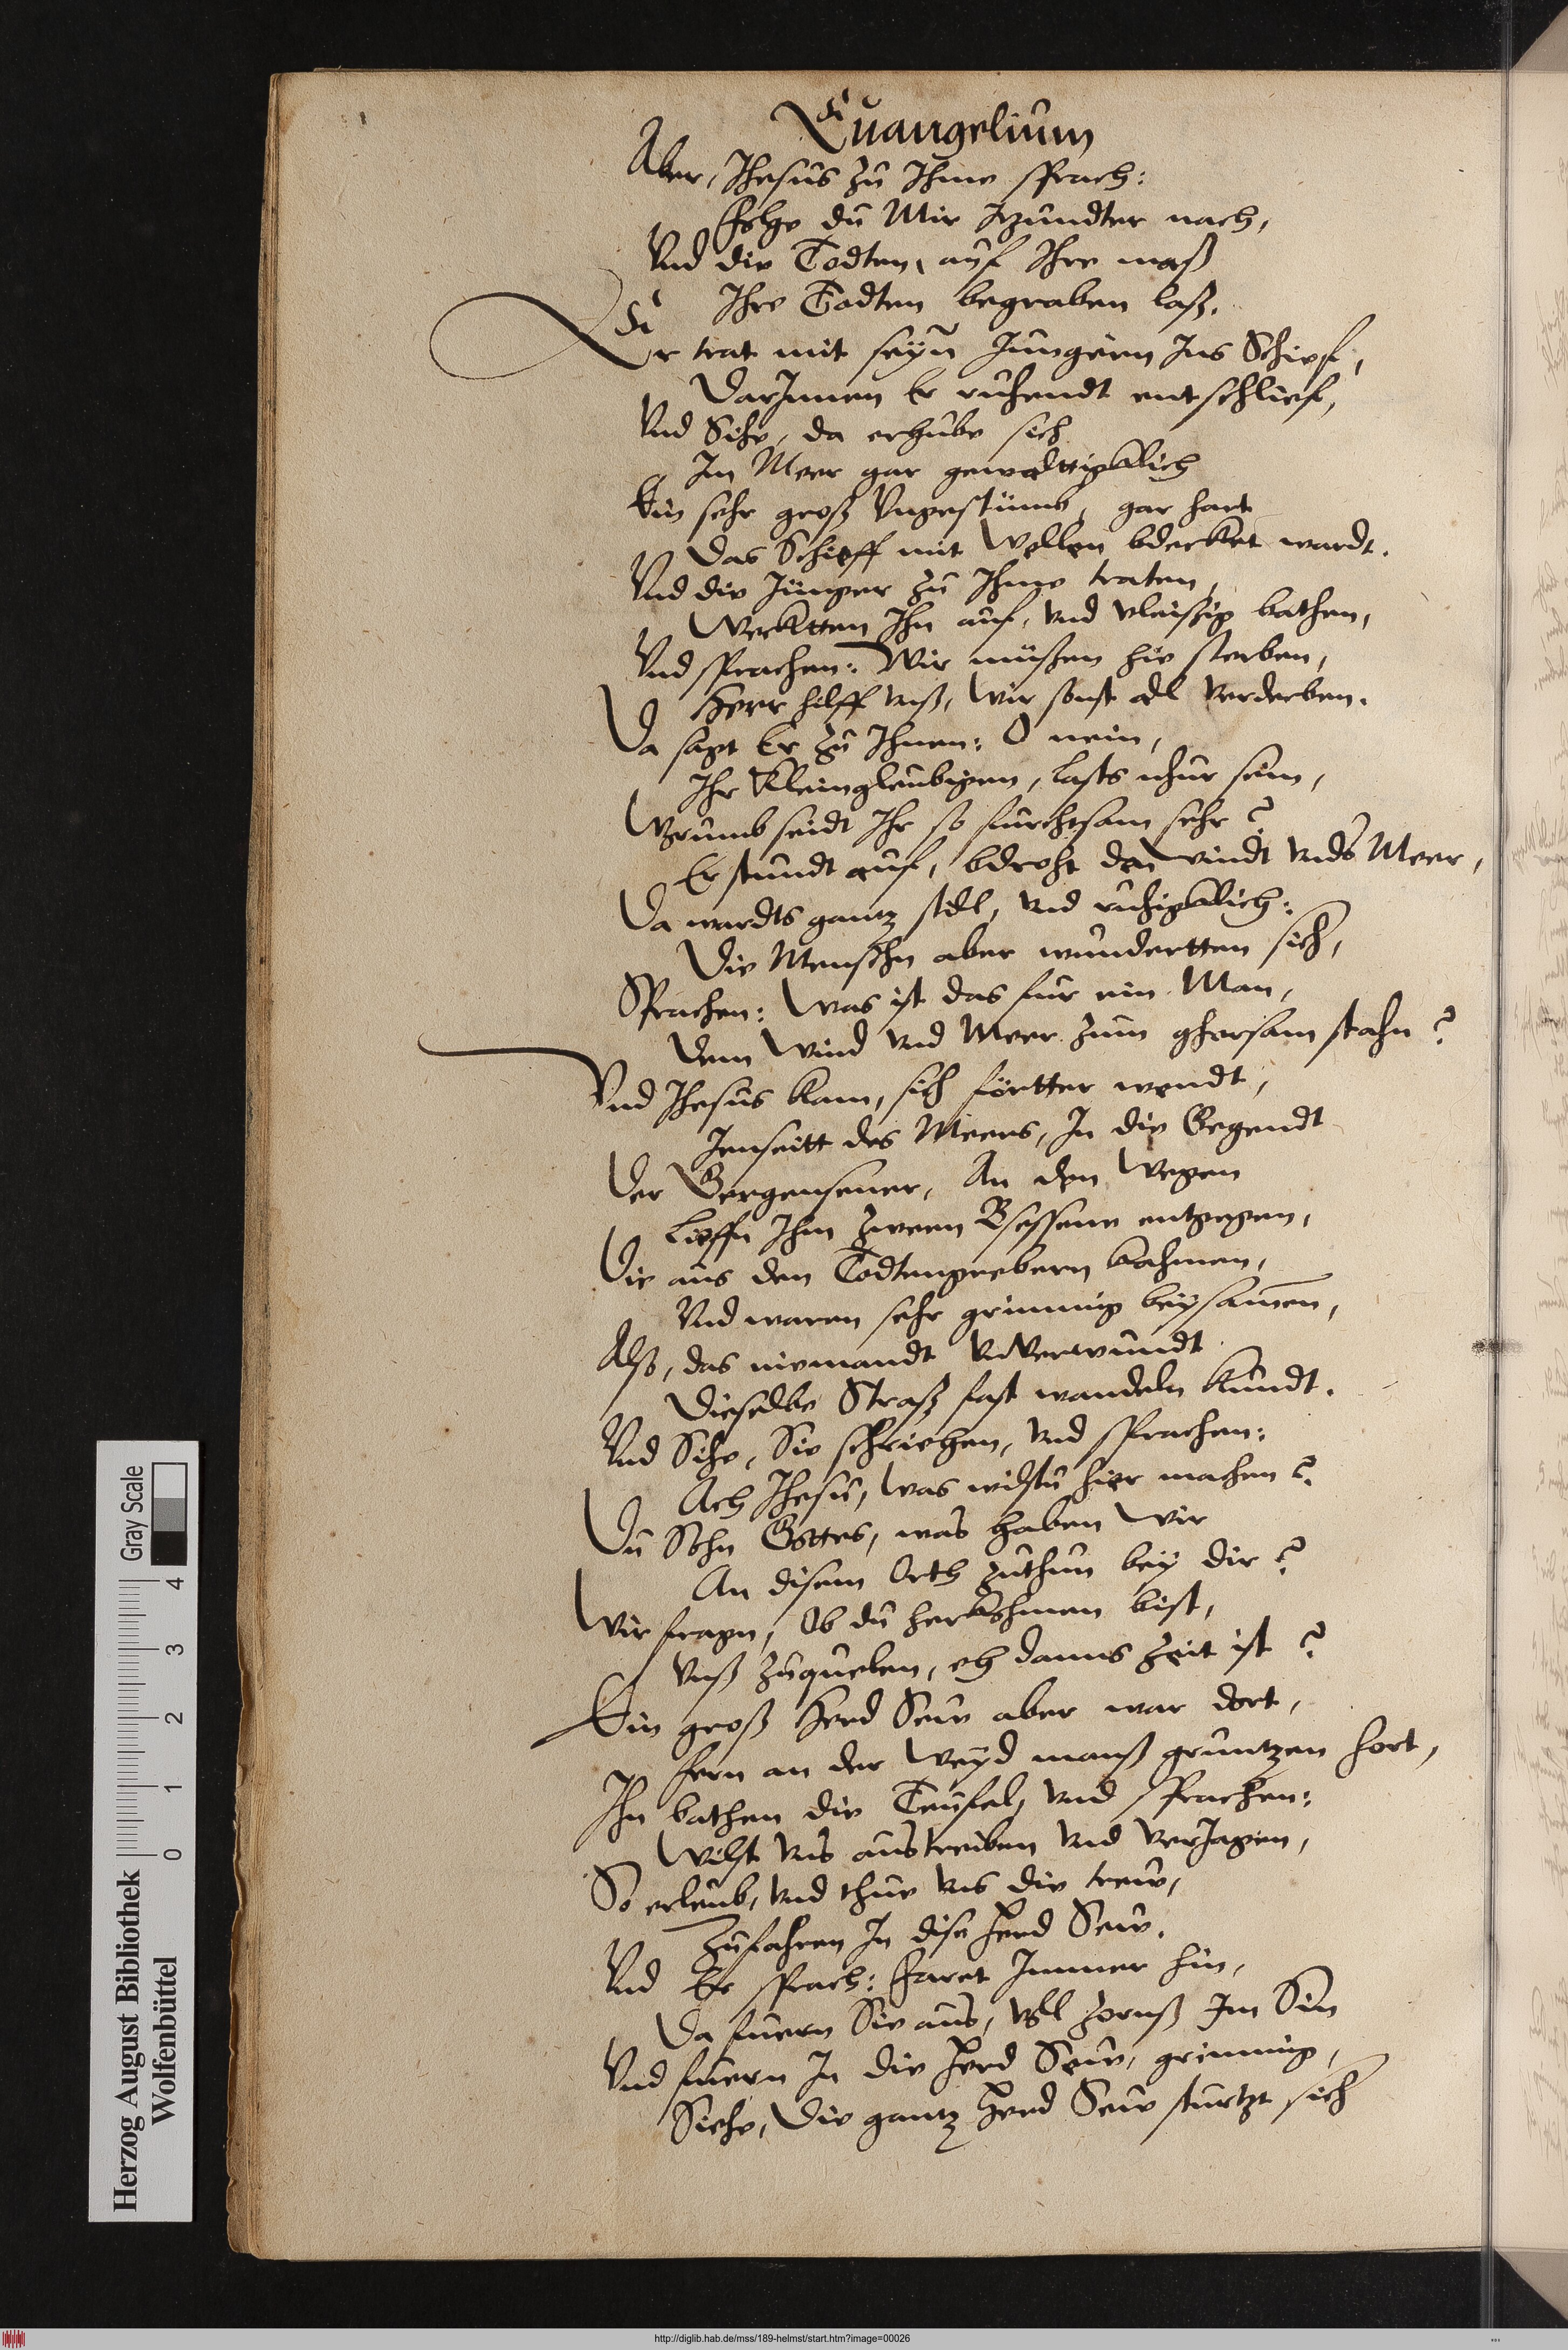 Euangelium
Aber, Jhesus zu Ihme sprach:
Folge du Mir itzundter nach,
Vnd die Todten, auf Ihre maß
Ihre Todten begraben laß.
Er trat mit seyn Jungern Ins Schief,
DarInnen Er ruhendt entschlief,
Vnd Sihe, da erhube sich
Im Meer gar gewaltigklich
Ein sehr groß Vngestümb, gar hart
Das Schieff mit Wellen bdecket wardt.
Vnd die Jünger zu Ihme traten,
Wecktten Ihn auf, vnd vleißig bathen,
Vnd sprachen: Wir müßen hie sterben,
Herr hilff vnß, Wir sonst all Verderben.
Da sagt Er zu Ihnen: O nein,
Ihr Kleingleubigen, lasts nhur sein,
Warumb seidt Ihr so furchtsam sehr?
Er stundt auf, bdroht den Windt vnds Meer,
Da wardts gantz still, vnd ruhigklich:
Die Menschn aber wundertten sich,
Sprachen: Was ist das fur ein Man,
Dem Wind vnd Meer zum ghorsam stahn?
Vnd Jhesus kam, sich förtter wendt,
Jenseitt des Meers, In die Gegendt
Der Gergensener, An den Wegen
Lieffn Ihm zween Bsessene entgegen,
Die aus den Todtengrebern kahmen,
Vnd waren sehr grimmig beysamen,
Also, das niemandt vnVerwundt
Dieselbe Straß fast wandeln kundt.
Vnd Sihe, Sie schriehen, vnd sprachen:
Ach Jhesu, Was wilstu hier machen?
Du Sohn Gottes, was haben Wir
An disem Orth zuthun bey dir?
Wir fragn, Ob du herkohmen bist,
Vnß zuquelen, eh danns Zeit ist?
Ein groß Herd Sew aber war dort,
Fern an der Weyd manß gruntzen hort,
Ihn bathen die Teufel, vnd sprachen:
Wilst vns austreiben vnd VerJagen,
So erleub, vnd thue vns die trew,
Zufahren In dise Herd Sew.
Vnd Er sprach: Faret Immer hin,
Da fuern Sie aus, Voll zornß Im Sin
Vnd fuern In die Herd Sew, grimmig,
Siehe, Die gantz Herd Sew sturtzt sich
Herzog August Bibliothek
Wolfenbüttel
0 1 2 3 4
Gray Scale
http://diglib.hab.de/mss/189-helmst/start.htm?image=00026